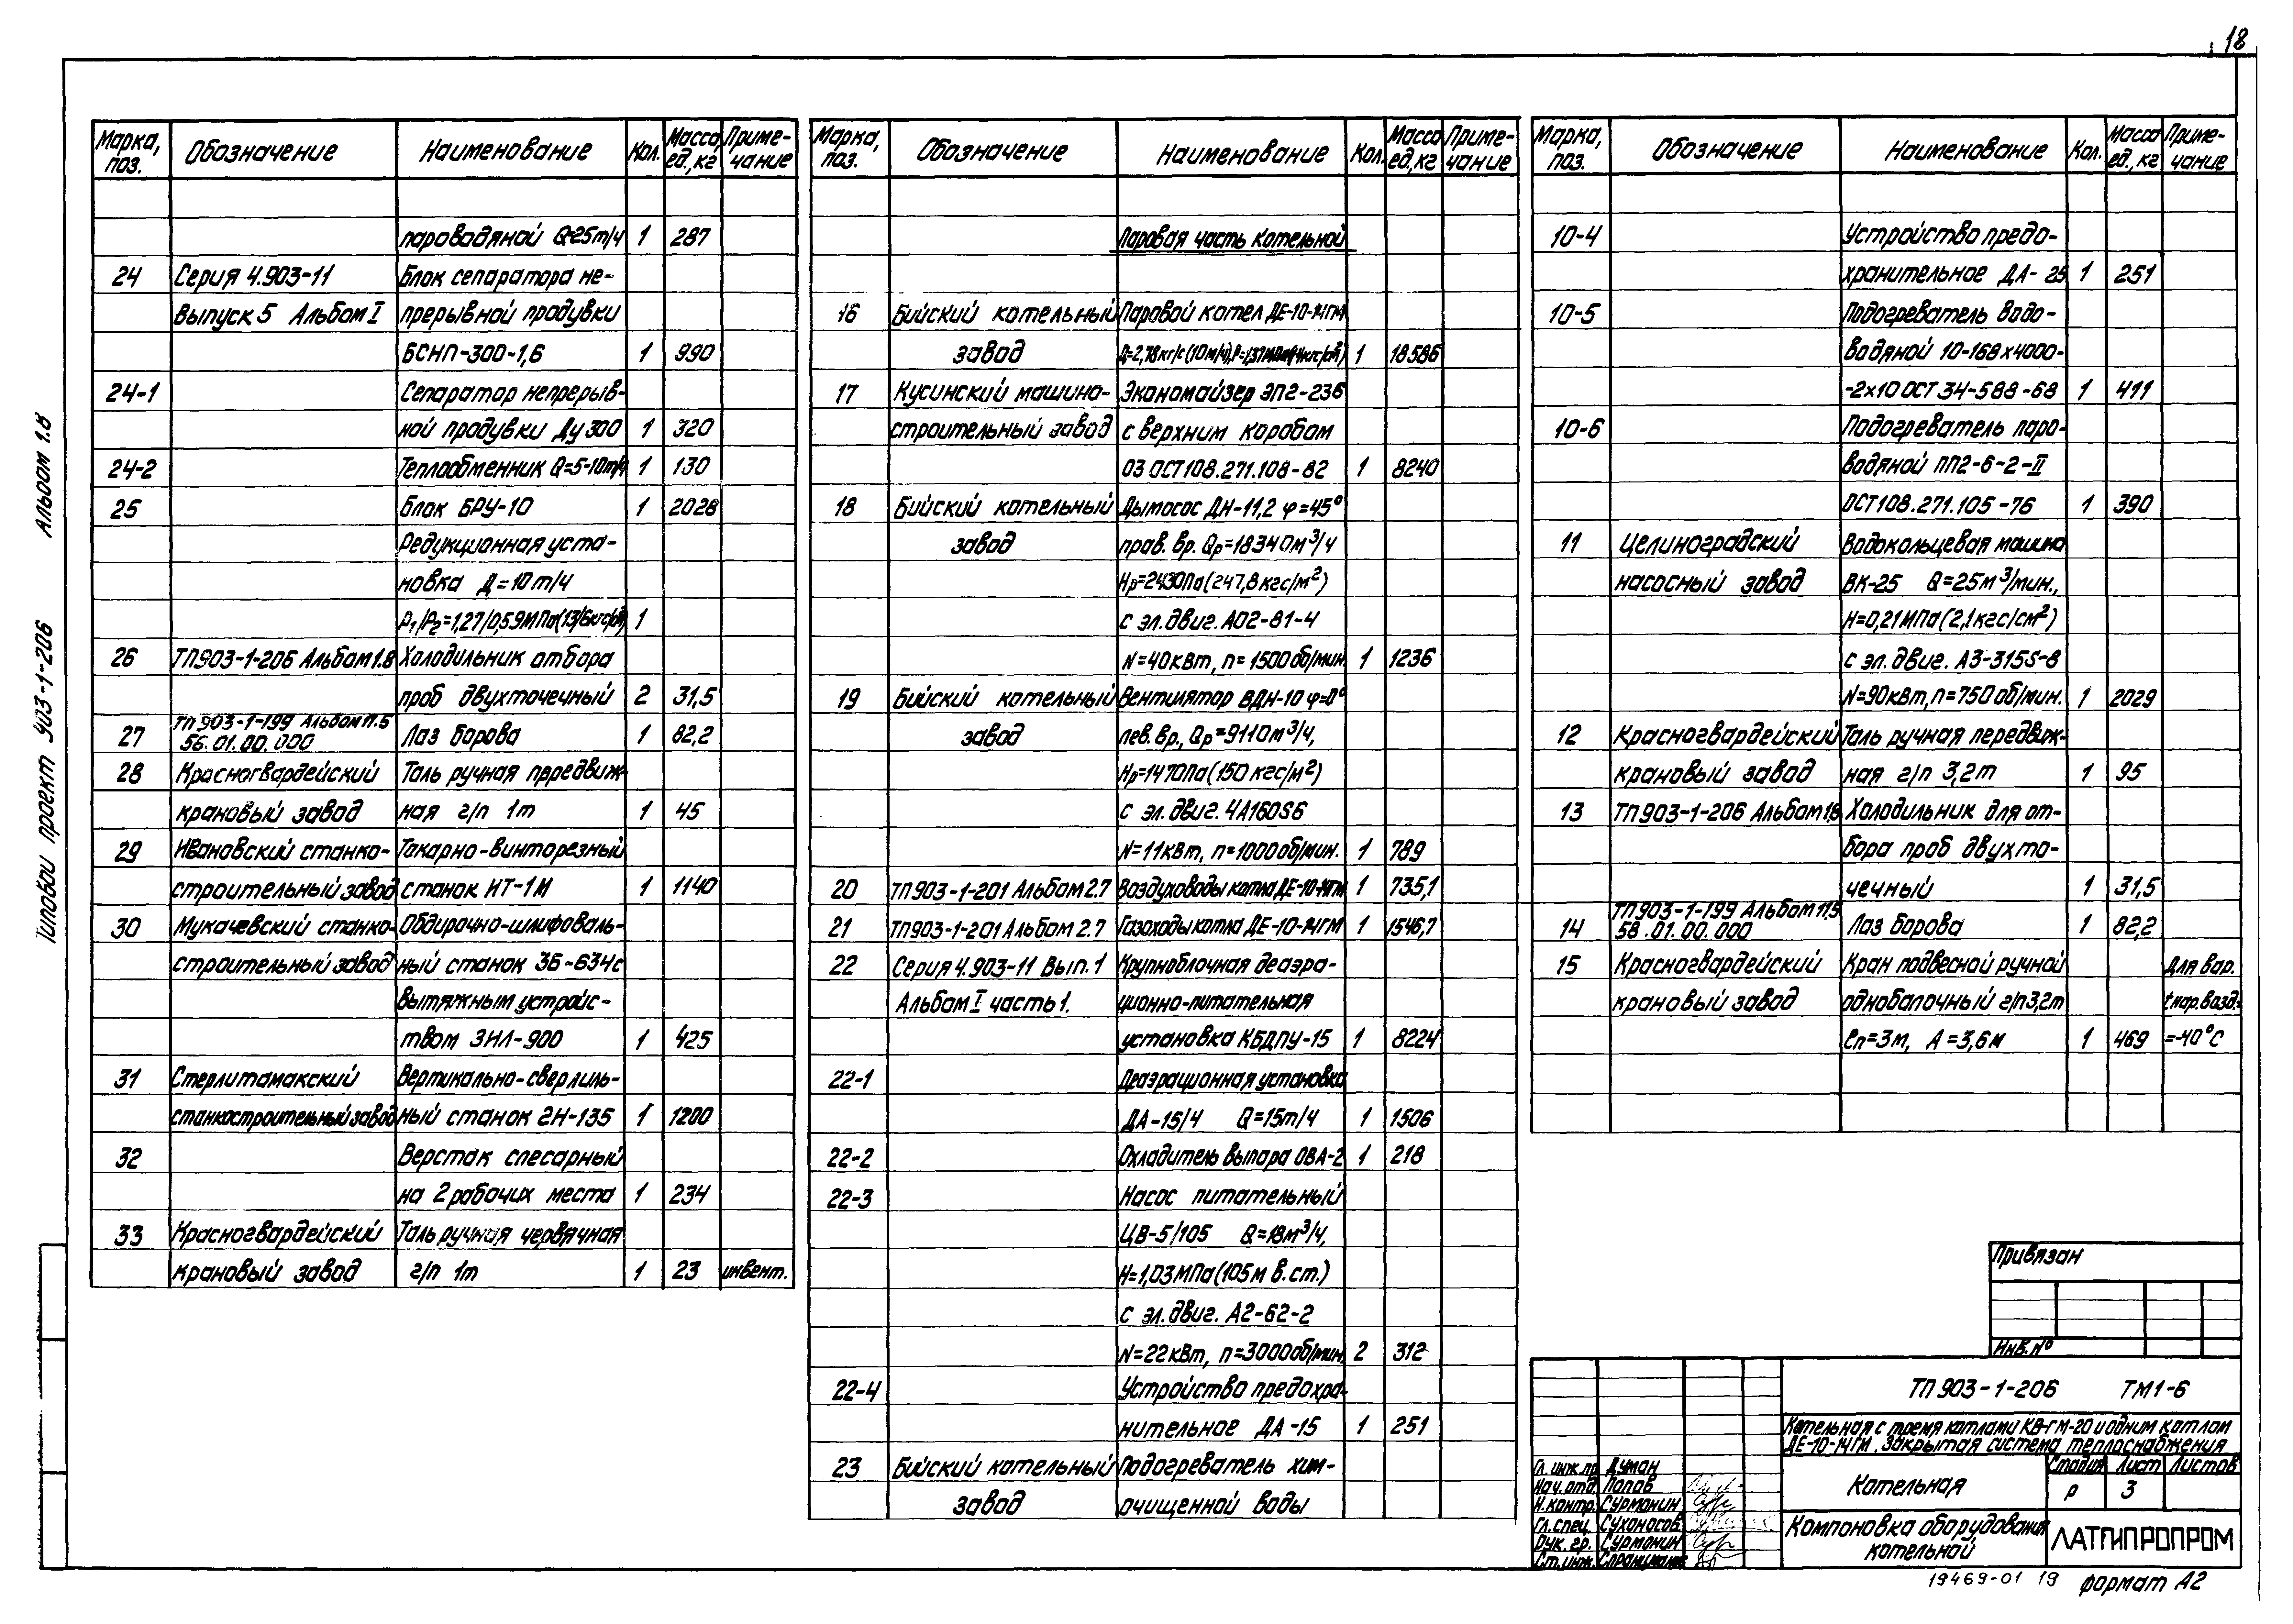 18
Альбом 1.8
Типовой проект 903-1-206
Марка, поз. Обозначение Наименование Кол. Масса ед., кг Приме-чание
пароводяной Q=25т/ч 1 287
24 Серия 4.903-11 Блок сепаратора не-
Выпуск 5 Альбом I прерывной продувки
БСНП-300-1,6 1 990
24-1 Сепаратор непрерыв-
ной продувки Ду 300 1 320
24-2 Теплообменник Q=5-10т/ч 1 130
25 Блок БРУ-10 1 2028
Редукционная уста-
новка Д=10т/ч
Р1/Р2=1,27/0,59МПа(13/6кгс/см²) 1
26 ТП903-1-206 Альбом1.8 Холодильник отбора
проб двухточечный 2 31,5
27 ТП903-1-199 Альбом П.5 56.01.00.000 Лаз борова 1 82,2
28 Красногвардейский Таль ручная передвиж-
крановый завод ная г/п 1т 1 45
29 Ивановский станко- Токарно-винторезный
строительный завод станок ИТ-1М 1 1140
30 Мукачевский станко- Обдирочно-шлифоваль-
строительный завод ный станок 3Б-634с
вытяжным устройс-
твом ЗИЛ-900 1 425
31 Стерлитамакский Вертикально-сверлиль-
станкостроительный завод ный станок 2Н-135 1 1200
32 Верстак слесарный
на 2 рабочих места 1 234
33 Красногвардейский Таль ручная червячная
крановый завод г/п 1т 1 23 инвент.
Марка, поз. Обозначение Наименование Кол. Масса ед., кг Приме-чание
Паровая часть котельной
16 Бийский котельный Паровой котел ДЕ-10-14ГМ
завод Д=2,78кг/с(10т/ч),Р=1,37МПа(14кгс/см²) 1 18586
17 Кусинский машино- Экономайзер ЭП2-236
строительный завод с верхним коробом
03 ОСТ108.271.108-82 1 8240
18 Бийский котельный Дымосос ДН-11,2 φ=45°
завод прав. вр. Qр=18340м³/ч
Нр=2430Па(247,8кгс/м²)
с эл.двиг. А02-81-4
N=40кВт, n=1500об/мин. 1 1236
19 Бийский котельный Вентилятор ВДН-10 φ=0°
завод лев. вр., Qр=9110м³/ч,
Нр=1470Па(150кгс/м²)
с эл.двиг. 4А160S6
N=11кВт, n=1000об/мин. 1 789
20 ТП903-1-201 Альбом 2.7 Воздуховоды котла ДЕ-10-14ГМ 1 735,1
21 ТП903-1-201 Альбом 2.7 Газоходы котла ДЕ-10-14ГМ 1 1546,7
22 Серия 4.903-11 Вып.1 Крупноблочная деаэра-
Альбом I часть 1. ционно-питательная
установка КБДПУ-15 1 8224
22-1 Деаэрационная установка
ДА-15/4 Q=15т/ч 1 1506
22-2 Охладитель выпара ОВА-2 1 218
22-3 Насос питательный
ЦВ-5/105 Q=18м³/ч,
Н=1,03МПа(105м в.ст.)
с эл.двиг. А2-62-2
N=22кВт, n=3000об/мин. 2 312
22-4 Устройство предохра-
нительное ДА-15 1 251
23 Бийский котельный Подогреватель хим-
завод очищенной воды
Марка, поз. Обозначение Наименование Кол. Масса ед., кг Приме-чание
10-4 Устройство предо-
хранительное ДА-25 1 251
10-5 Подогреватель водо-
водяной 10-168х4000-
-2х10 ОСТ 34-588-68 1 411
10-6 Подогреватель паро-
водяной ПП2-6-2-II
ОСТ108.271.105-76 1 390
11 Целиноградский Водокольцевая машина
насосный завод ВК-25 Q=25м³/мин.,
Н=0,21МПа(2,1кгс/см²)
с эл.двиг. А3-315S-8
N=90кВт, n=750об/мин. 1 2029
12 Красногвардейский Таль ручная передвиж-
крановый завод ная г/п 3,2т 1 95
13 ТП903-1-206 Альбом1,8 Холодильник для от-
бора проб двухто-
чечный 1 31,5
14 ТП903-1-199 Альбом П,5 58.01.00.000 Лаз борова 1 82,2
15 Красногвардейский Кран подвесной ручной Для вар.
крановый завод однобалочный г/п3,2т t нар.возд.
Сп=3м, А=3,6м 1 469 =-40°С
Привязан
Инв. №
ТП 903-1-206 ТМ1-6
Котельная с тремя котлами КВ-ГМ-20 и одним котлом
ДЕ-10-14ГМ. Закрытая система теплоснабжения
Гл. инж.пр. Думан
Нач.отд. Попов
Н.контр. Сурмонин
Гл.спец. Сухоносов
Рук. гр. Сурмонин
Ст.инж.
Котельная
Стадия Лист Листов
Р 3
Компоновка оборудования
котельной
ЛАТГИПРОПРОМ
19469-01 19 формат А2